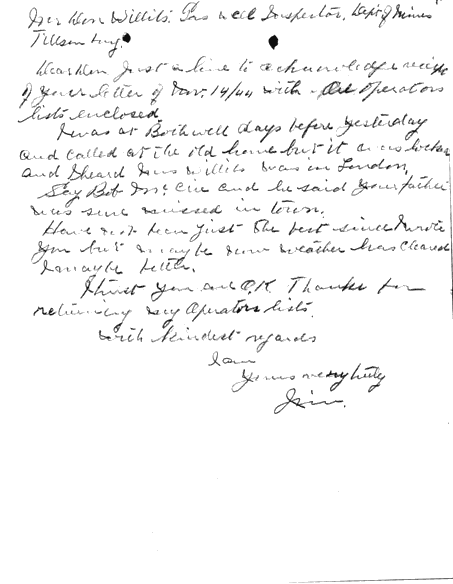 Mr Don Willits. Gas well Inspector, Dept of Mines
Tillsonburg.
Dear Don Just a line to acknowledge receipt
of your letter of Nov. 14/44 with Operators
lists enclosed
I was at Bothwell days before yesterday
and called at the old home but it was locked
and I heard Mrs Willits was in London,
Say Bob and he said your father
was sure missed in town.
Have not been just the best since I wrote
you but maybe now weather has cleared
I maybe better.
I trust you are O.K. Thanks for
returning my Operators lists.
With kindest regards
I am
Yours very truly
Jim.